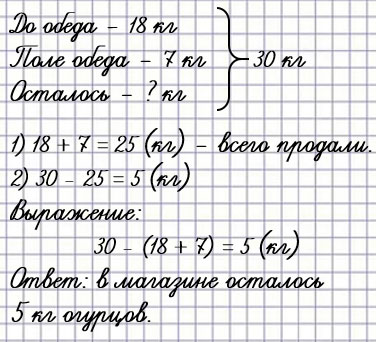 До обеда – 18 кг
Поле обеда – 7 кг
Осталось – ? кг
30 кг
1) 18 + 7 = 25 (кг) – всего продали.
2) 30 – 25 = 5 (кг)
Выражение:
30 – (18 + 7) = 5 (кг)
Ответ: в магазине осталось
5 кг огурцов.